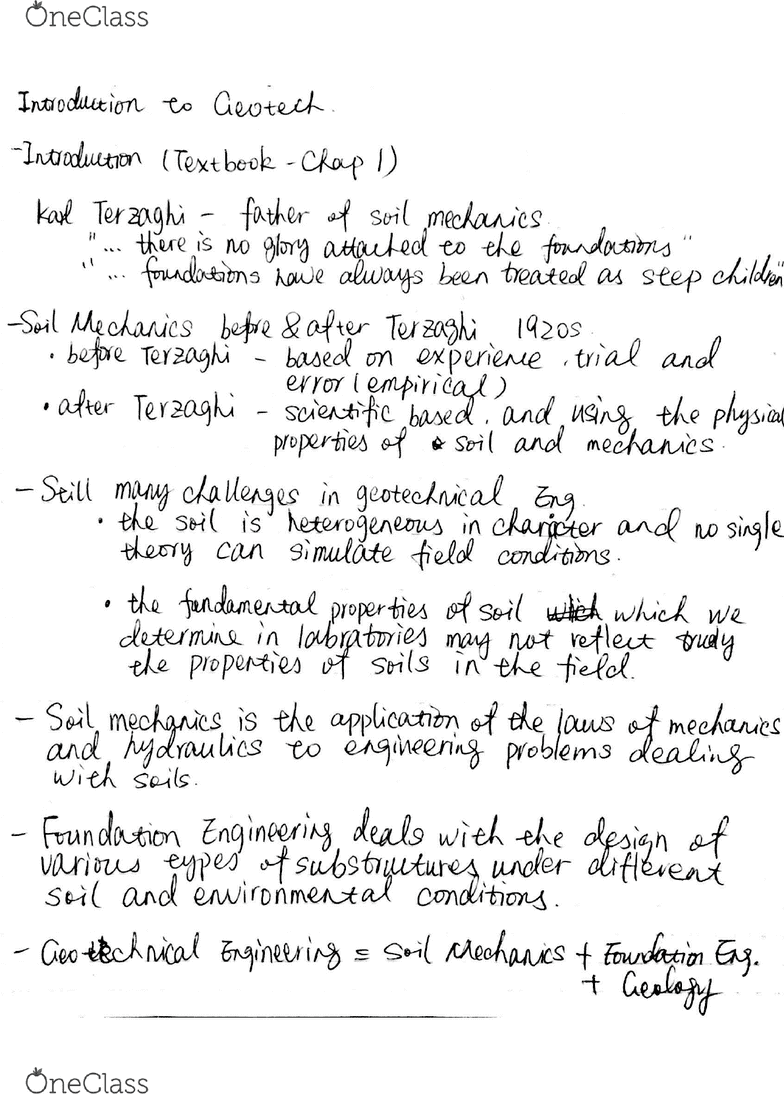 OneClass
Introduction to Geotech.
- Introduction (Textbook - Chap 1)
Karl Terzaghi - father of soil mechanics
"... there is no glory attached to the foundations"
"... foundations have always been treated as step children"
- Soil Mechanics before & after Terzaghi 1920s
• before Terzaghi - based on experience, trial and
error (empirical)
• after Terzaghi - scientific based, and using the physical
properties of soil and mechanics.
- Still many challenges in geotechnical Eng.
• the soil is heterogeneous in character and no single
theory can simulate field conditions.
• the fundamental properties of soil which we
determine in labratories may not reflect truely
the properties of soils in the field.
- Soil mechanics is the application of the laws of mechanics
and hydraulics to engineering problems dealing
with soils.
- Foundation Engineering deals with the design of
various types of substructures under different
soil and environmental conditions.
- Geotechnical Engineering = Soil Mechanics + Foundation Eng.
+ Geology
OneClass